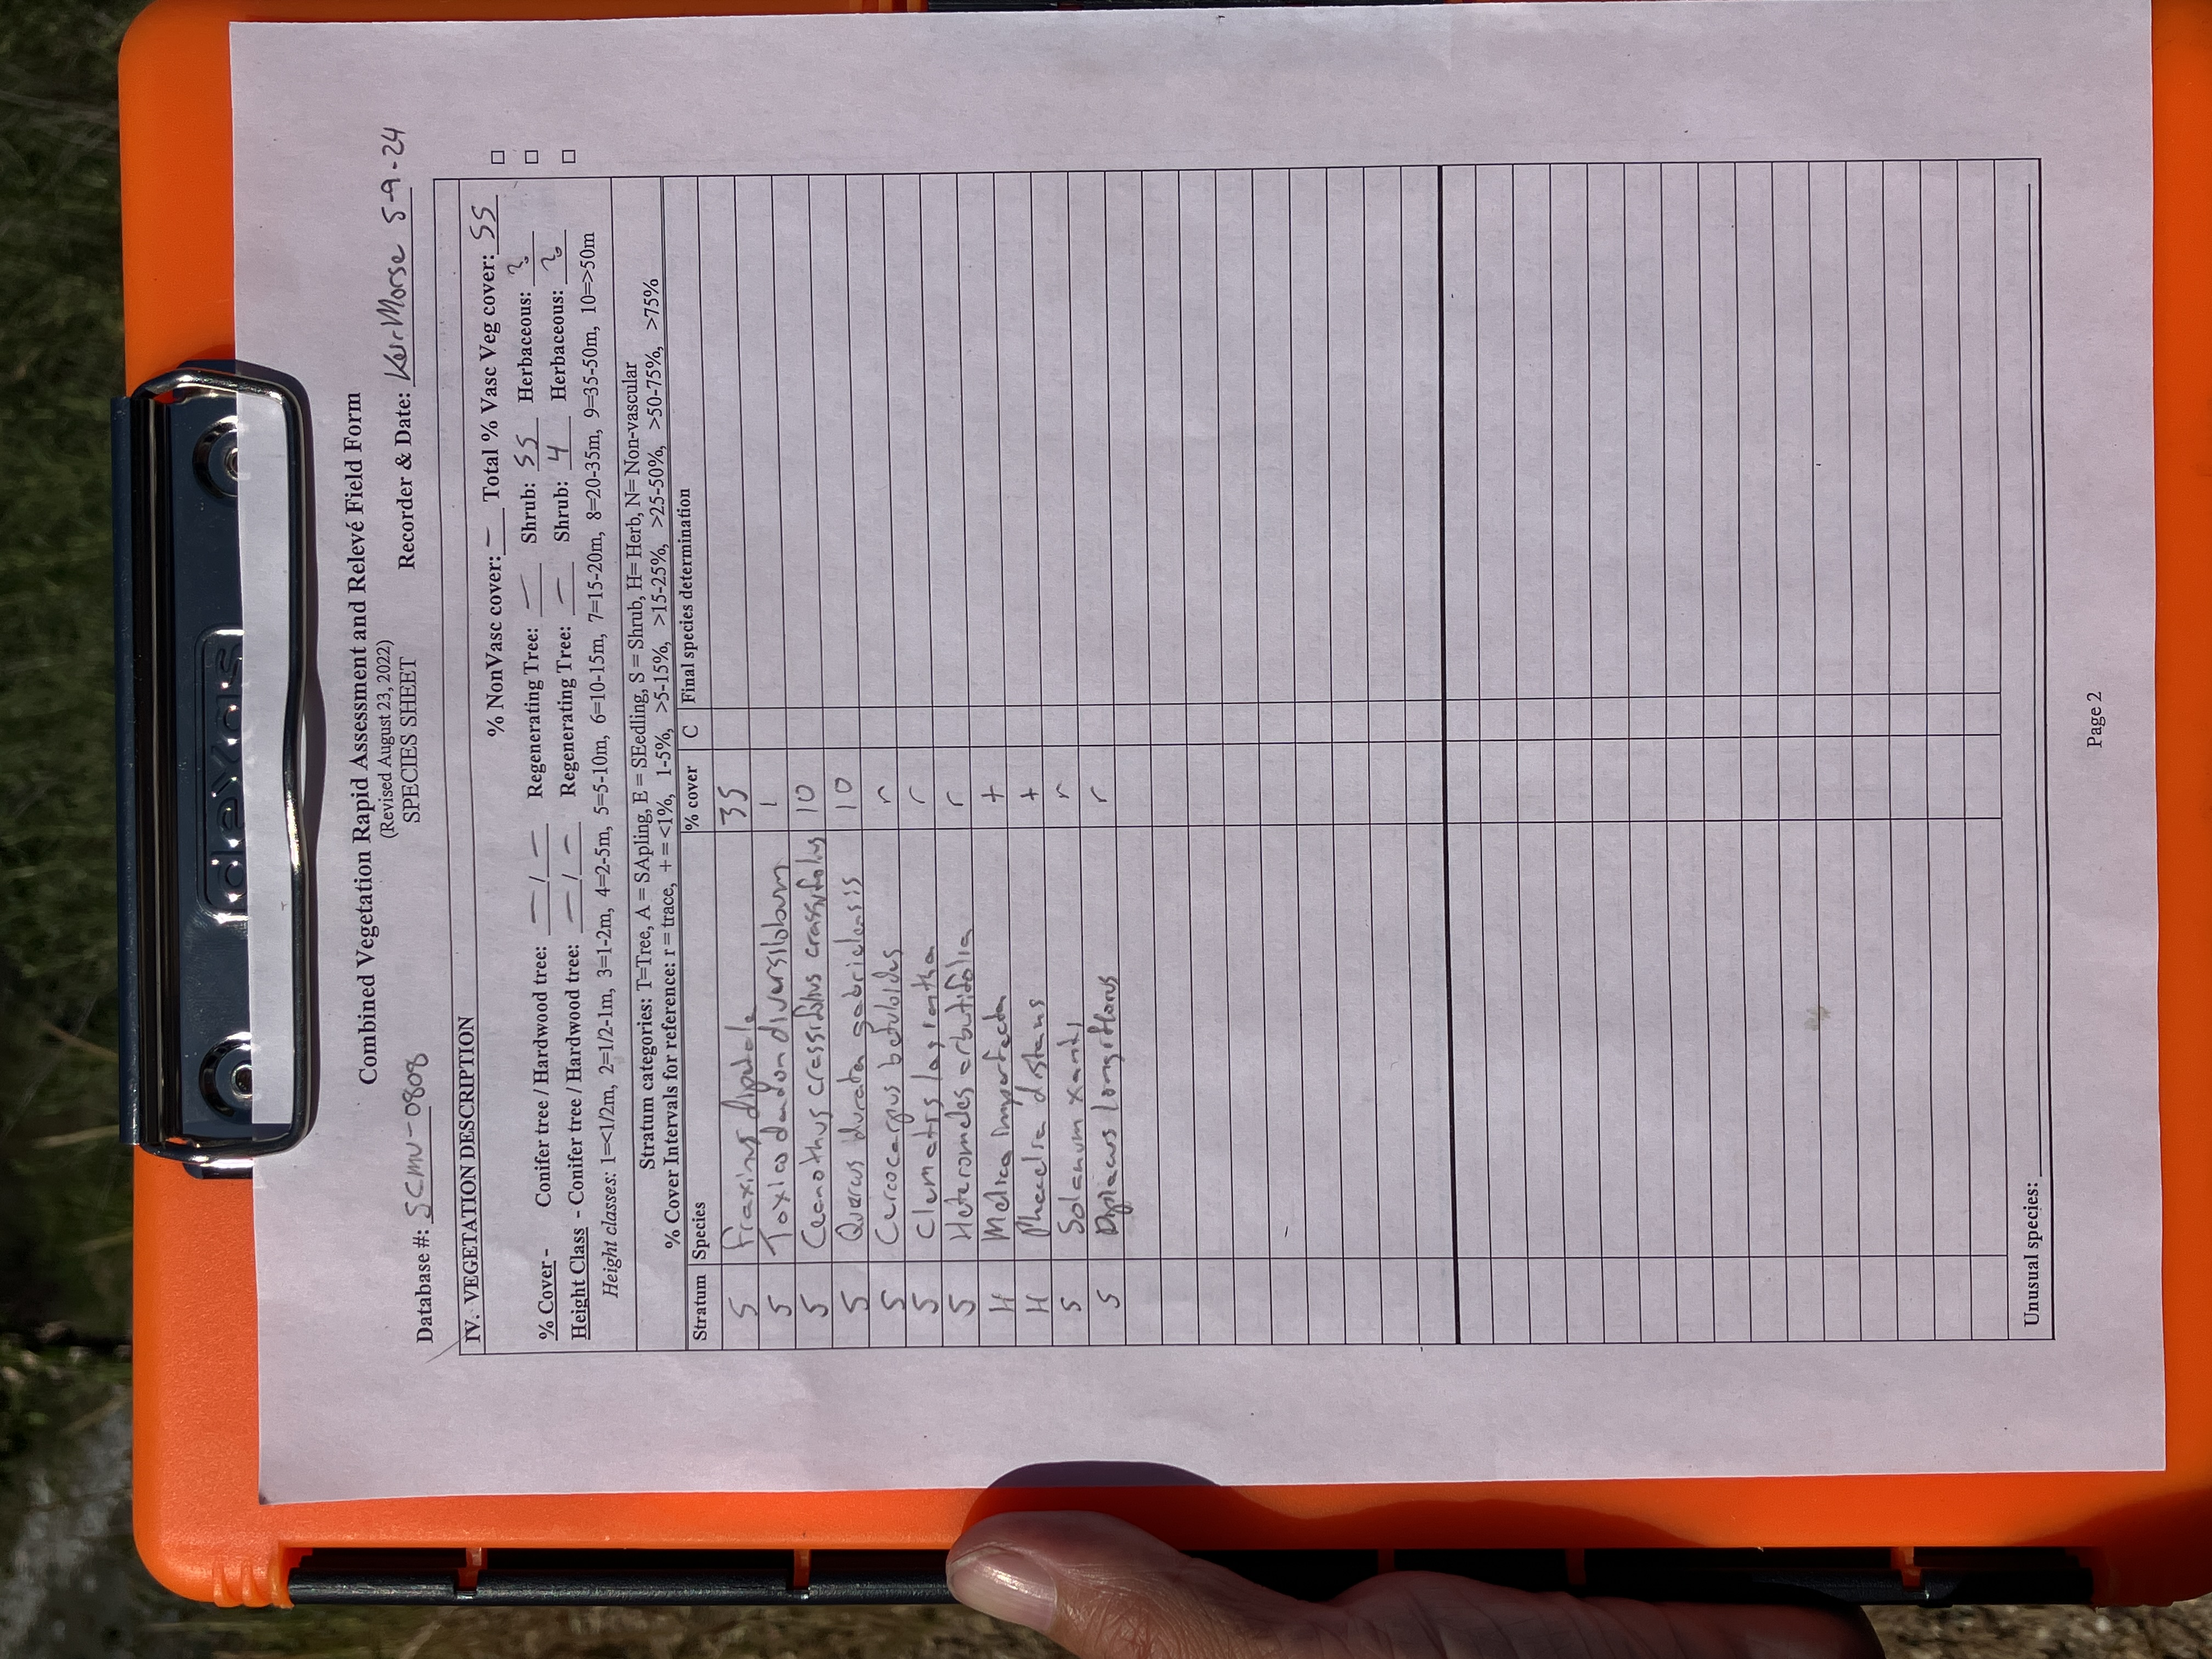 Combined Vegetation Rapid Assessment and Relevé Field Form
(Revised August 23, 2022)
SPECIES SHEET
Database #: SCMV-0808 Recorder & Date: Keir Morse 5-9-24
IV. VEGETATION DESCRIPTION
% NonVasc cover: — Total % Vasc Veg cover: 55 □
% Cover - Conifer tree / Hardwood tree: — / — Regenerating Tree: — Shrub: 55 Herbaceous: ? □
Height Class - Conifer tree / Hardwood tree: — / — Regenerating Tree: — Shrub: 4 Herbaceous: ? □
Height classes: 1=<1/2m, 2=1/2-1m, 3=1-2m, 4=2-5m, 5=5-10m, 6=10-15m, 7=15-20m, 8=20-35m, 9=35-50m, 10=>50m
Stratum categories: T=Tree, A = SApling, E = SEedling, S = Shrub, H= Herb, N= Non-vascular
% Cover Intervals for reference: r = trace, + = <1%, 1-5%, >5-15%, >15-25%, >25-50%, >50-75%, >75%
Stratum Species % cover C Final species determination
S Fraxinus dipetala 35
S Toxicodendron diversilobum 1
S Ceanothus crassifolius crassifolius 10
S Quercus durata gabrielensis 10
S Cercocarpus betuloides r
S Clematis lasiantha r
S Heteromeles arbutifolia r
H Melica imperfecta +
H Phacelia distans +
S Solanum xanti r
S Diplacus longiflorus r
Unusual species:
Page 2